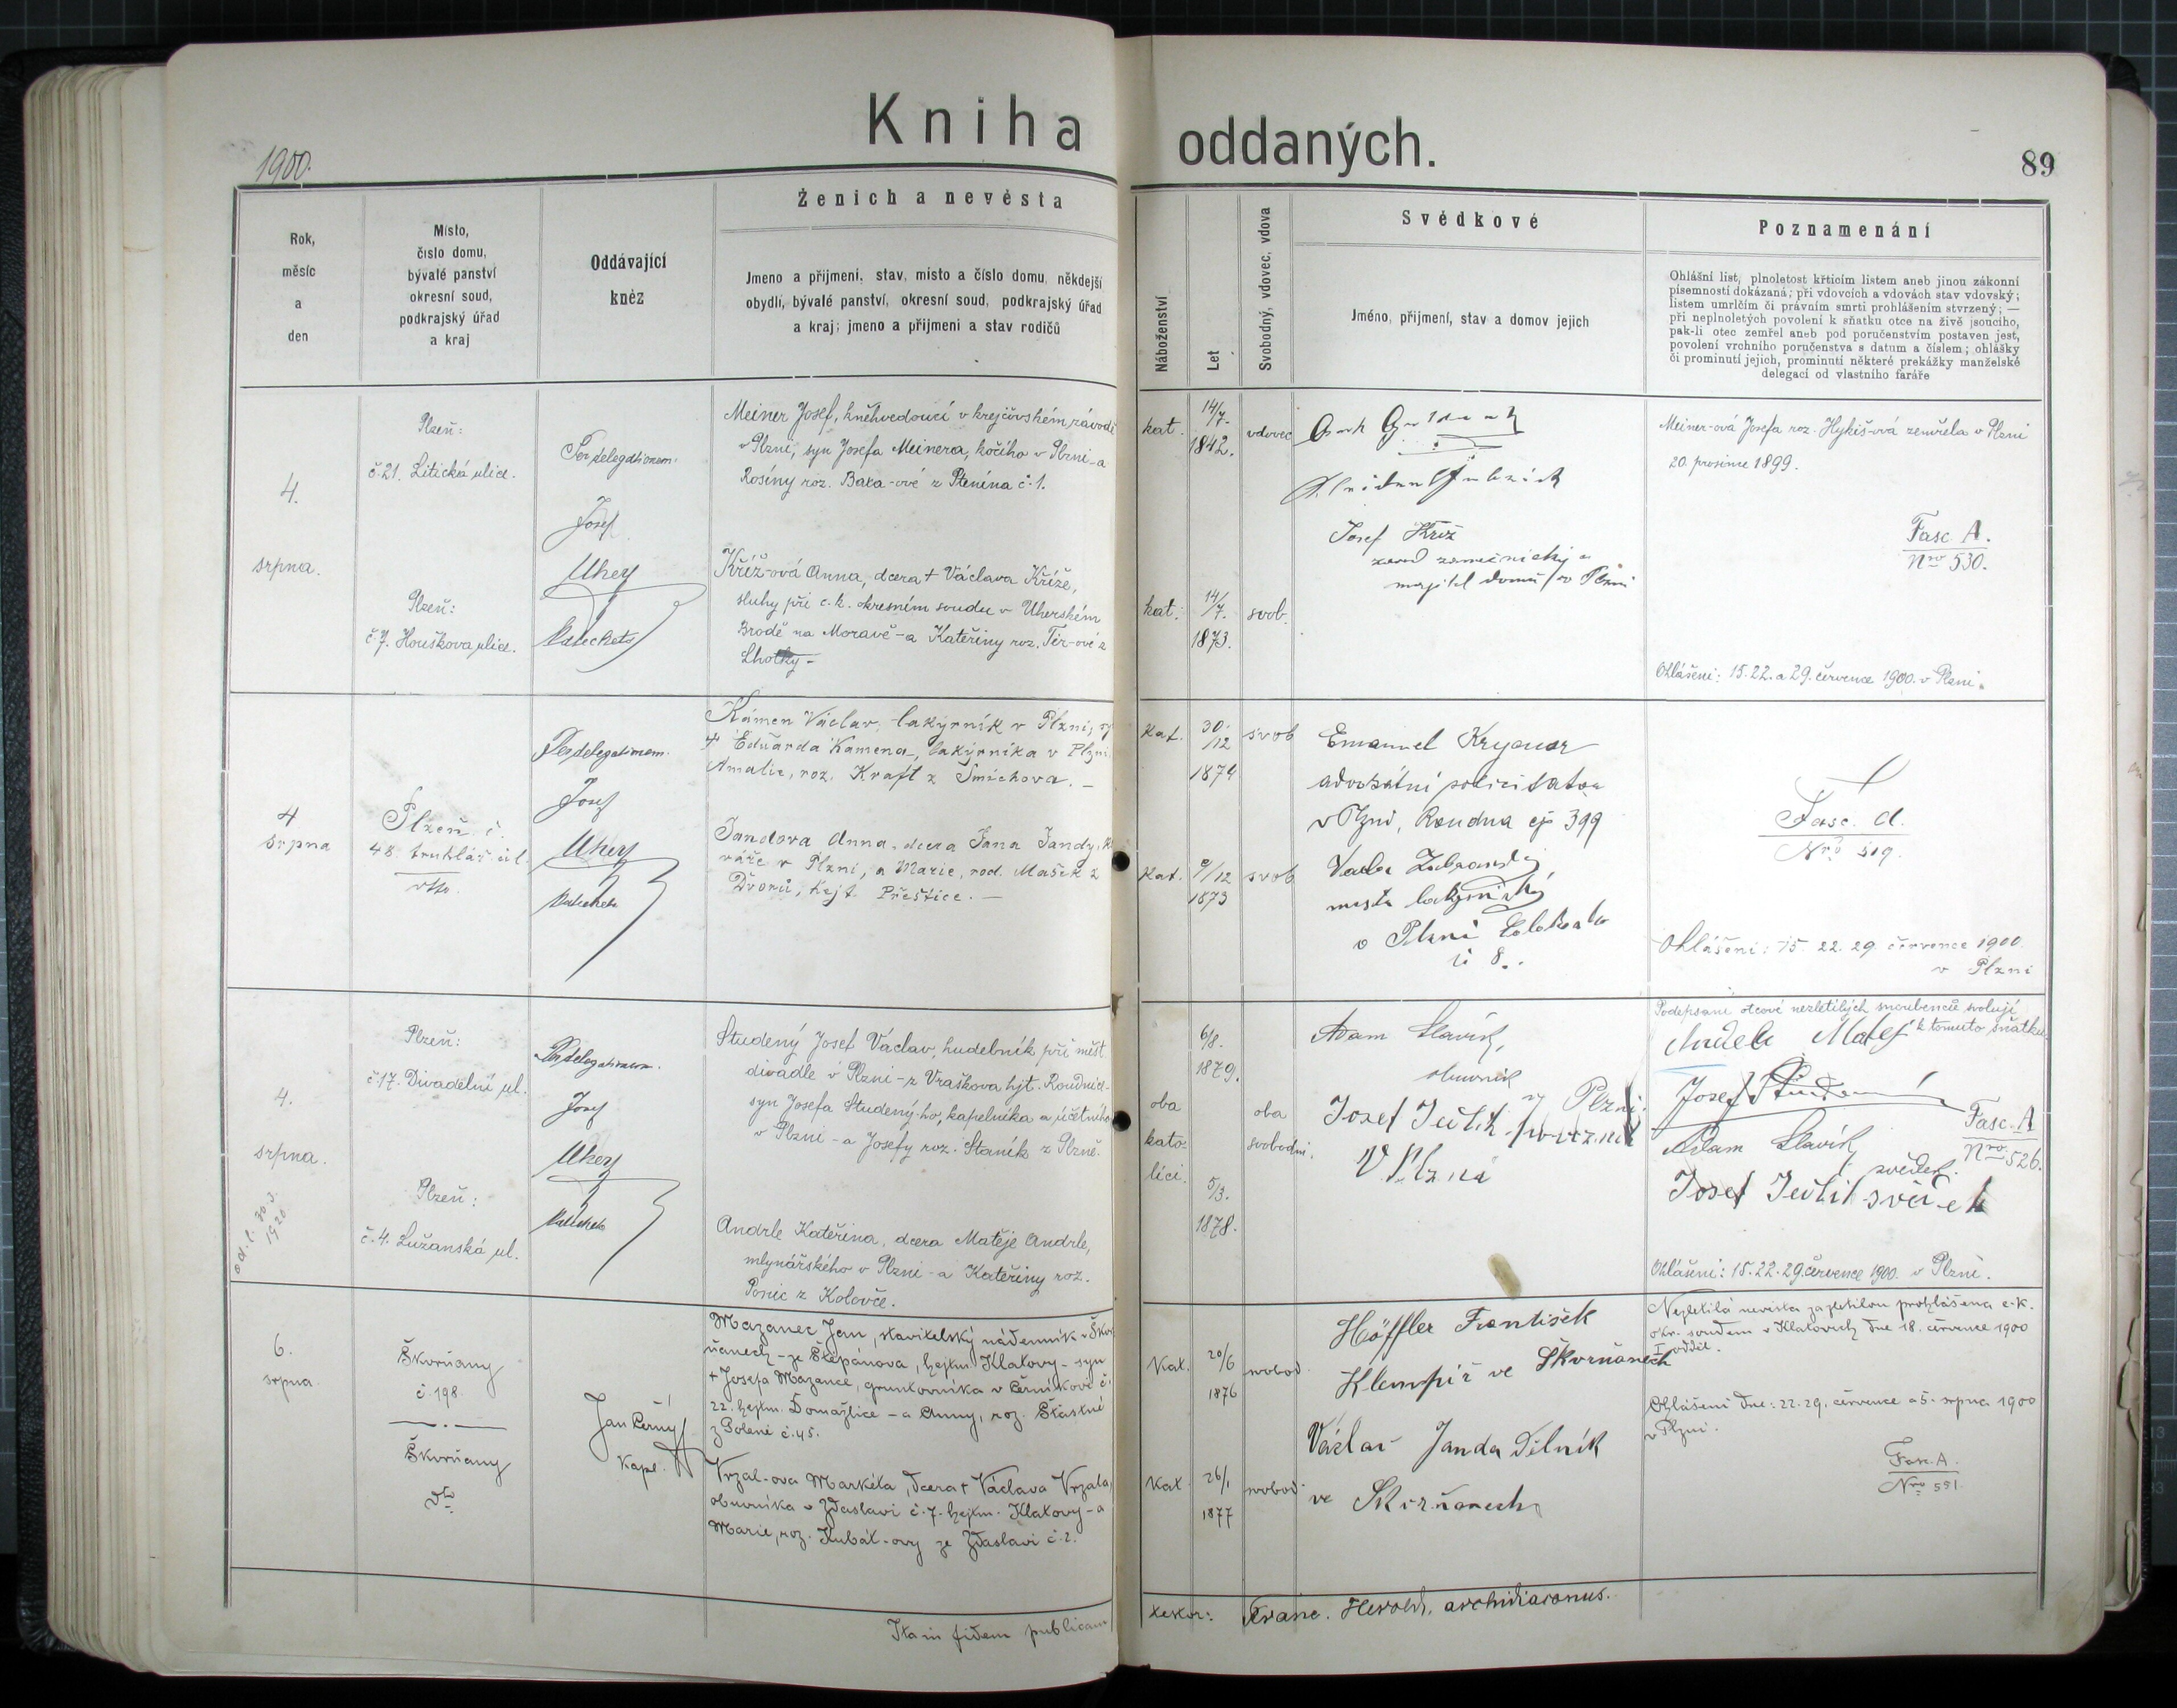 Kniha oddaných.
1900.
89
Rok,
měsíc
a
den
Místo,
číslo domu,
bývalé panství
okresní soud,
podkrajský úřad
a kraj
Oddávající
kněz
Ženich a nevěsta
Jmeno a přijmeni, stav, místo a číslo domu, někdejší
obydlí, bývalé panství, okresní soud, podkrajský úřad
a kraj; jmeno a přijmeni a stav rodičů
Náboženství
Let
Svobodný, vdovec, vdova
Svědkové
Jméno, přijmení, stav a domov jejich
Poznamenání
Ohlášní list, plnoletost křticím listem aneb jinou zákonní
písemností dokázaná; při vdovcích a vdovách stav vdovský;
listem umrlčím či právním smrti prohlášením stvrzený; —
při neplnoletých povolení k sňatku otce na živě jsoucího,
pak-li otec zemřel aneb pod poručenstvím postaven jest,
povolení vrchního poručenstva s datum a číslem; ohlášky
či prominutí jejich, prominutí některé prekážky manželské
delegací od vlastního faráře
4.
srpna.
Plzeň:
č. 21. Litická ulice.
Plzeň:
č. 7. Houškova ulice.
Per delegationem.
Josef
Uhey
Katecheta
Meiner Josef, kněhvedoucí v krejčovském závodě
v Plzni, syn Josefa Meinera, kočího v Plzni - a
Rosiny roz. Baxa-ové z Ptenína č. 1.
Kříž-ová Anna, dcera + Václava Kříže,
sluhy při c. k. okresním soudu v Uherském
Brodě na Moravě - a Kateřiny roz. Tir-ové z
Lhotky -
kat.
14/7.
1842.
vdovec
kat.
14/7.
1873.
svob.
Josef Kříž
zámečnický a
majitel domu v Plzni
Meiner-ová Josefa roz. Hykiš-ová zemřela v Plzni
20. prosince 1899.
Fasc A.
Nro 530.
Ohlášení: 15. 22. a 29. července 1900. v Plzni.
4
srpna
Plzeň č.
48. truhlář. ul.
dtto.
Per delegationem.
Josef
Uhey
Katecheta
Kámen Václav, lakýrník v Plzni, sy
+ Eduarda Kamena, lakýrníka v Plzni
Amalie, roz. Kraft z Smíchova. —
Jandova Anna, dcera Jana Jandy, ko
váře v Plzni, a Marie, rod. Mašek z
Dvorů, hejt. Přeštice. —
Kat.
30/12
1874
svob
Kat.
/12
1873
svob
Emanuel
advokátní solicitator
v Plzni, Roudna čp 399
Václav
v Plzni
č 8.
Fasc. A.
Nro 519.
Ohlášení: 15. 22. 29. července 1900
v Plzni
4.
srpna.
Plzeň:
č. 17. Divadelní ul.
Plzeň:
č. 4. Lužanská ul.
Per delegationem.
Josef
Uhey
Katecheta
Studený Josef Václav, hudebník při měst.
divadle v Plzni - z Vraškova hjt. Roudnice -
syn Josefa Studený-ho, kapelníka a účetního
v Plzni - a Josefy roz. Staník z Plzně.
Andrle Kateřina, dcera Matěje Andrle,
mlynářského v Plzni - a Kateřiny roz.
Ponic z Kolovče.
oba
kato-
líci.
6/8.
1879.
5/3.
1878.
oba
svobodní.
Adam Slavík,
obuvník
v Plzni.
Josef Jedlik
V Plzni
Podepsaní otcové nezletilých snoubenců svolují
k tomuto sňatku.
Josef Studený
Adam Slavík,
svědek.
Josef Jedlik svědek
Fasc. A
Nro 526.
Ohlášení: 15. 22. 29. července 1900. v Plzni.
6.
srpna
Škvrňany
č. 198.
Škvrňany
dto
Jan Černý
Kapl.
Mazanec Jan, stavitelský nádenník v Škvr
ňanech - ze Štěpánova, hejtm. Klatovy - syn
+ Josefa Mazance, gruntovníka v Černíkově č.
22. hejtm. Domažlice - a Anny, roz. Šťastné
z Poleně č. 45.
Vrzal-ova Markéta, dcera + Václava Vrzala,
obuvníka v Zdaslavi č. 7. hejtm. Klatovy - a
Marie, roz. Kubát-ovy ze Zdaslavi č. 2.
Kat.
20/6
1876
svobod.
Kat
26/1
1877
svobod.
Höffler František
Klempíř ve Škvrňanech
Václav Janda Dělník
ve Skvrňanech
Nezletilá nevěsta za zletilou prohlášena c. k.
okr. soudem v Klatovech dne 18. července 1900
I odděl.
Ohlášení dne: 22. 29. července a 5. srpna 1900
v Plzni.
Fasc. A.
Nro 551.
Ita in fidem publicam
testor: Franc. Herold, archidiaconus.